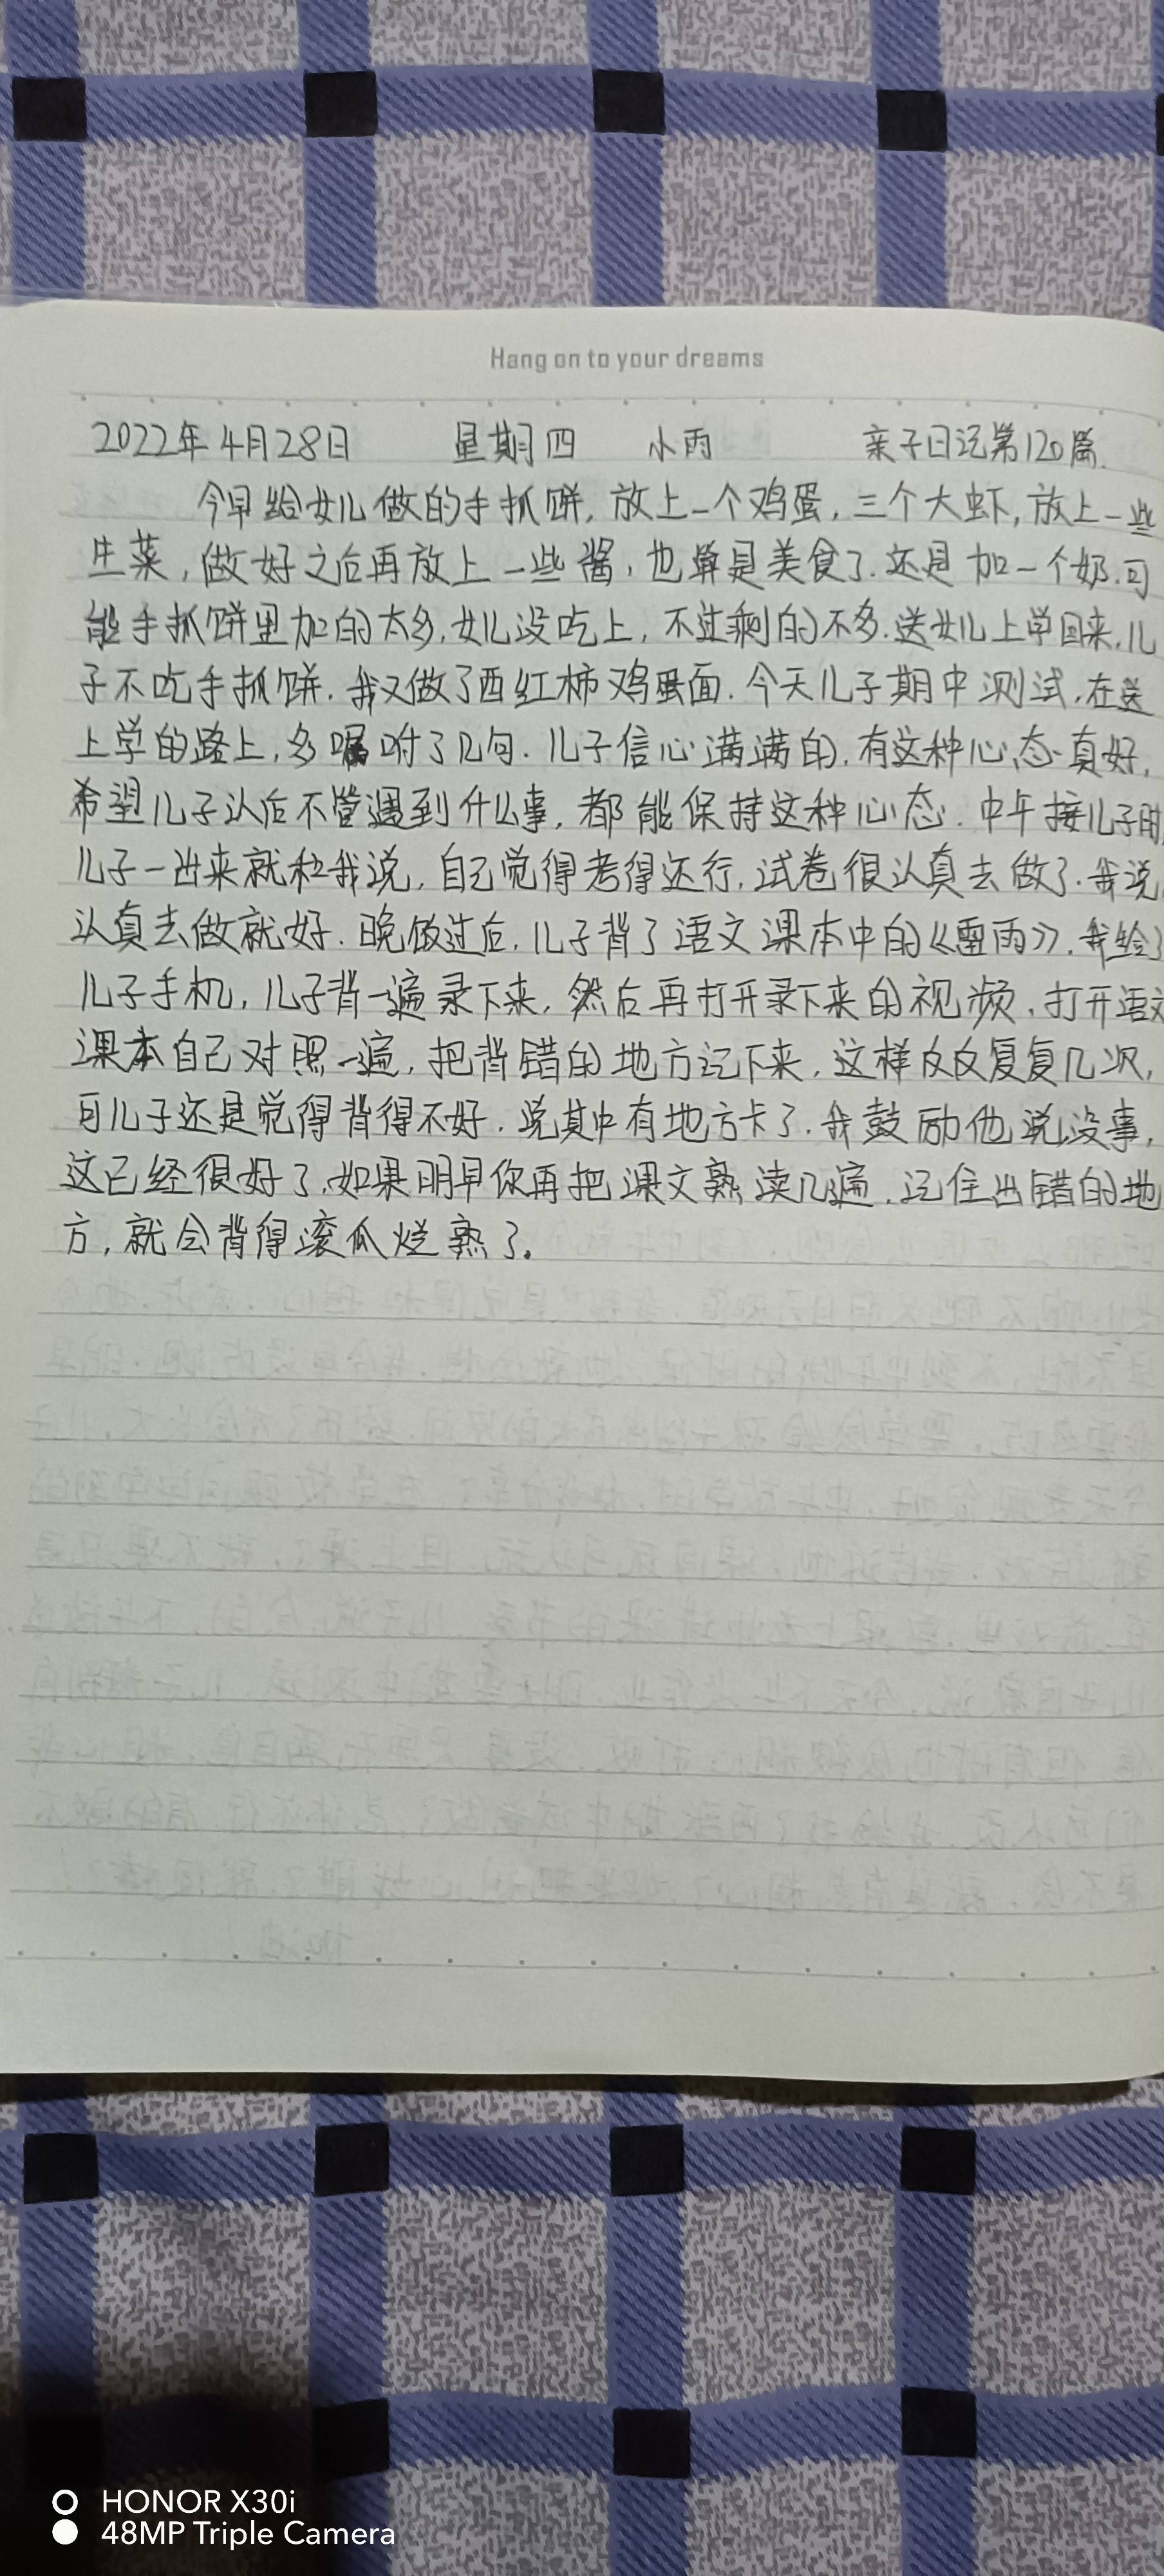 Hang on to your dreams
2022年4月28日 星期四 小雨 亲子日记第120篇.
今早给女儿做的手抓饼,放上一个鸡蛋,三个大虾,放上一些
生菜,做好之后再放上一些酱,也算是美食了.还是加一个奶.可
能手抓饼里加的太多,女儿没吃上,不过剩的不多.送女儿上学回来,儿
子不吃手抓饼.我又做了西红柿鸡蛋面.今天儿子期中测试,在送
上学的路上,多嘱咐了几句.儿子信心满满的,有这种心态真好,
希望儿子以后不管遇到什么事,都能保持这种心态.中午接儿子时,
儿子一出来就和我说,自己觉得考得还行,试卷很认真去做了.我说,
认真去做就好.晚饭过后,儿子背了语文课本中的《雷雨》.我给了
儿子手机,儿子背一遍录下来,然后再打开录下来的视频,打开语文
课本自己对照一遍,把背错的地方记下来,这样反反复复几次,
可儿子还是觉得背得不好.说其中有地方卡了.我鼓励他说没事,
这已经很好了,如果明早你再把课文熟读几遍,记住出错的地
方,就会背得滚瓜烂熟了。
HONOR X30i
48MP Triple Camera